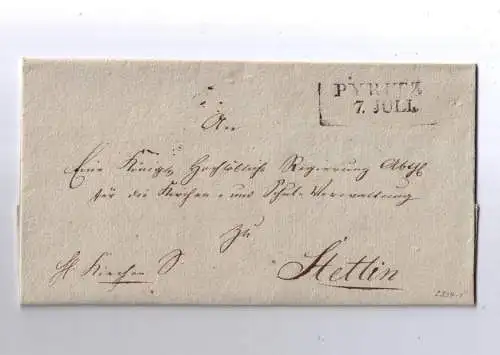 PYRITZ
7. JULI.
An
Eine Königl Hochlöbliche Regierung Abth
für die Kirchen- und Schul-Verwaltung
zu
Stettin
Kirchen S